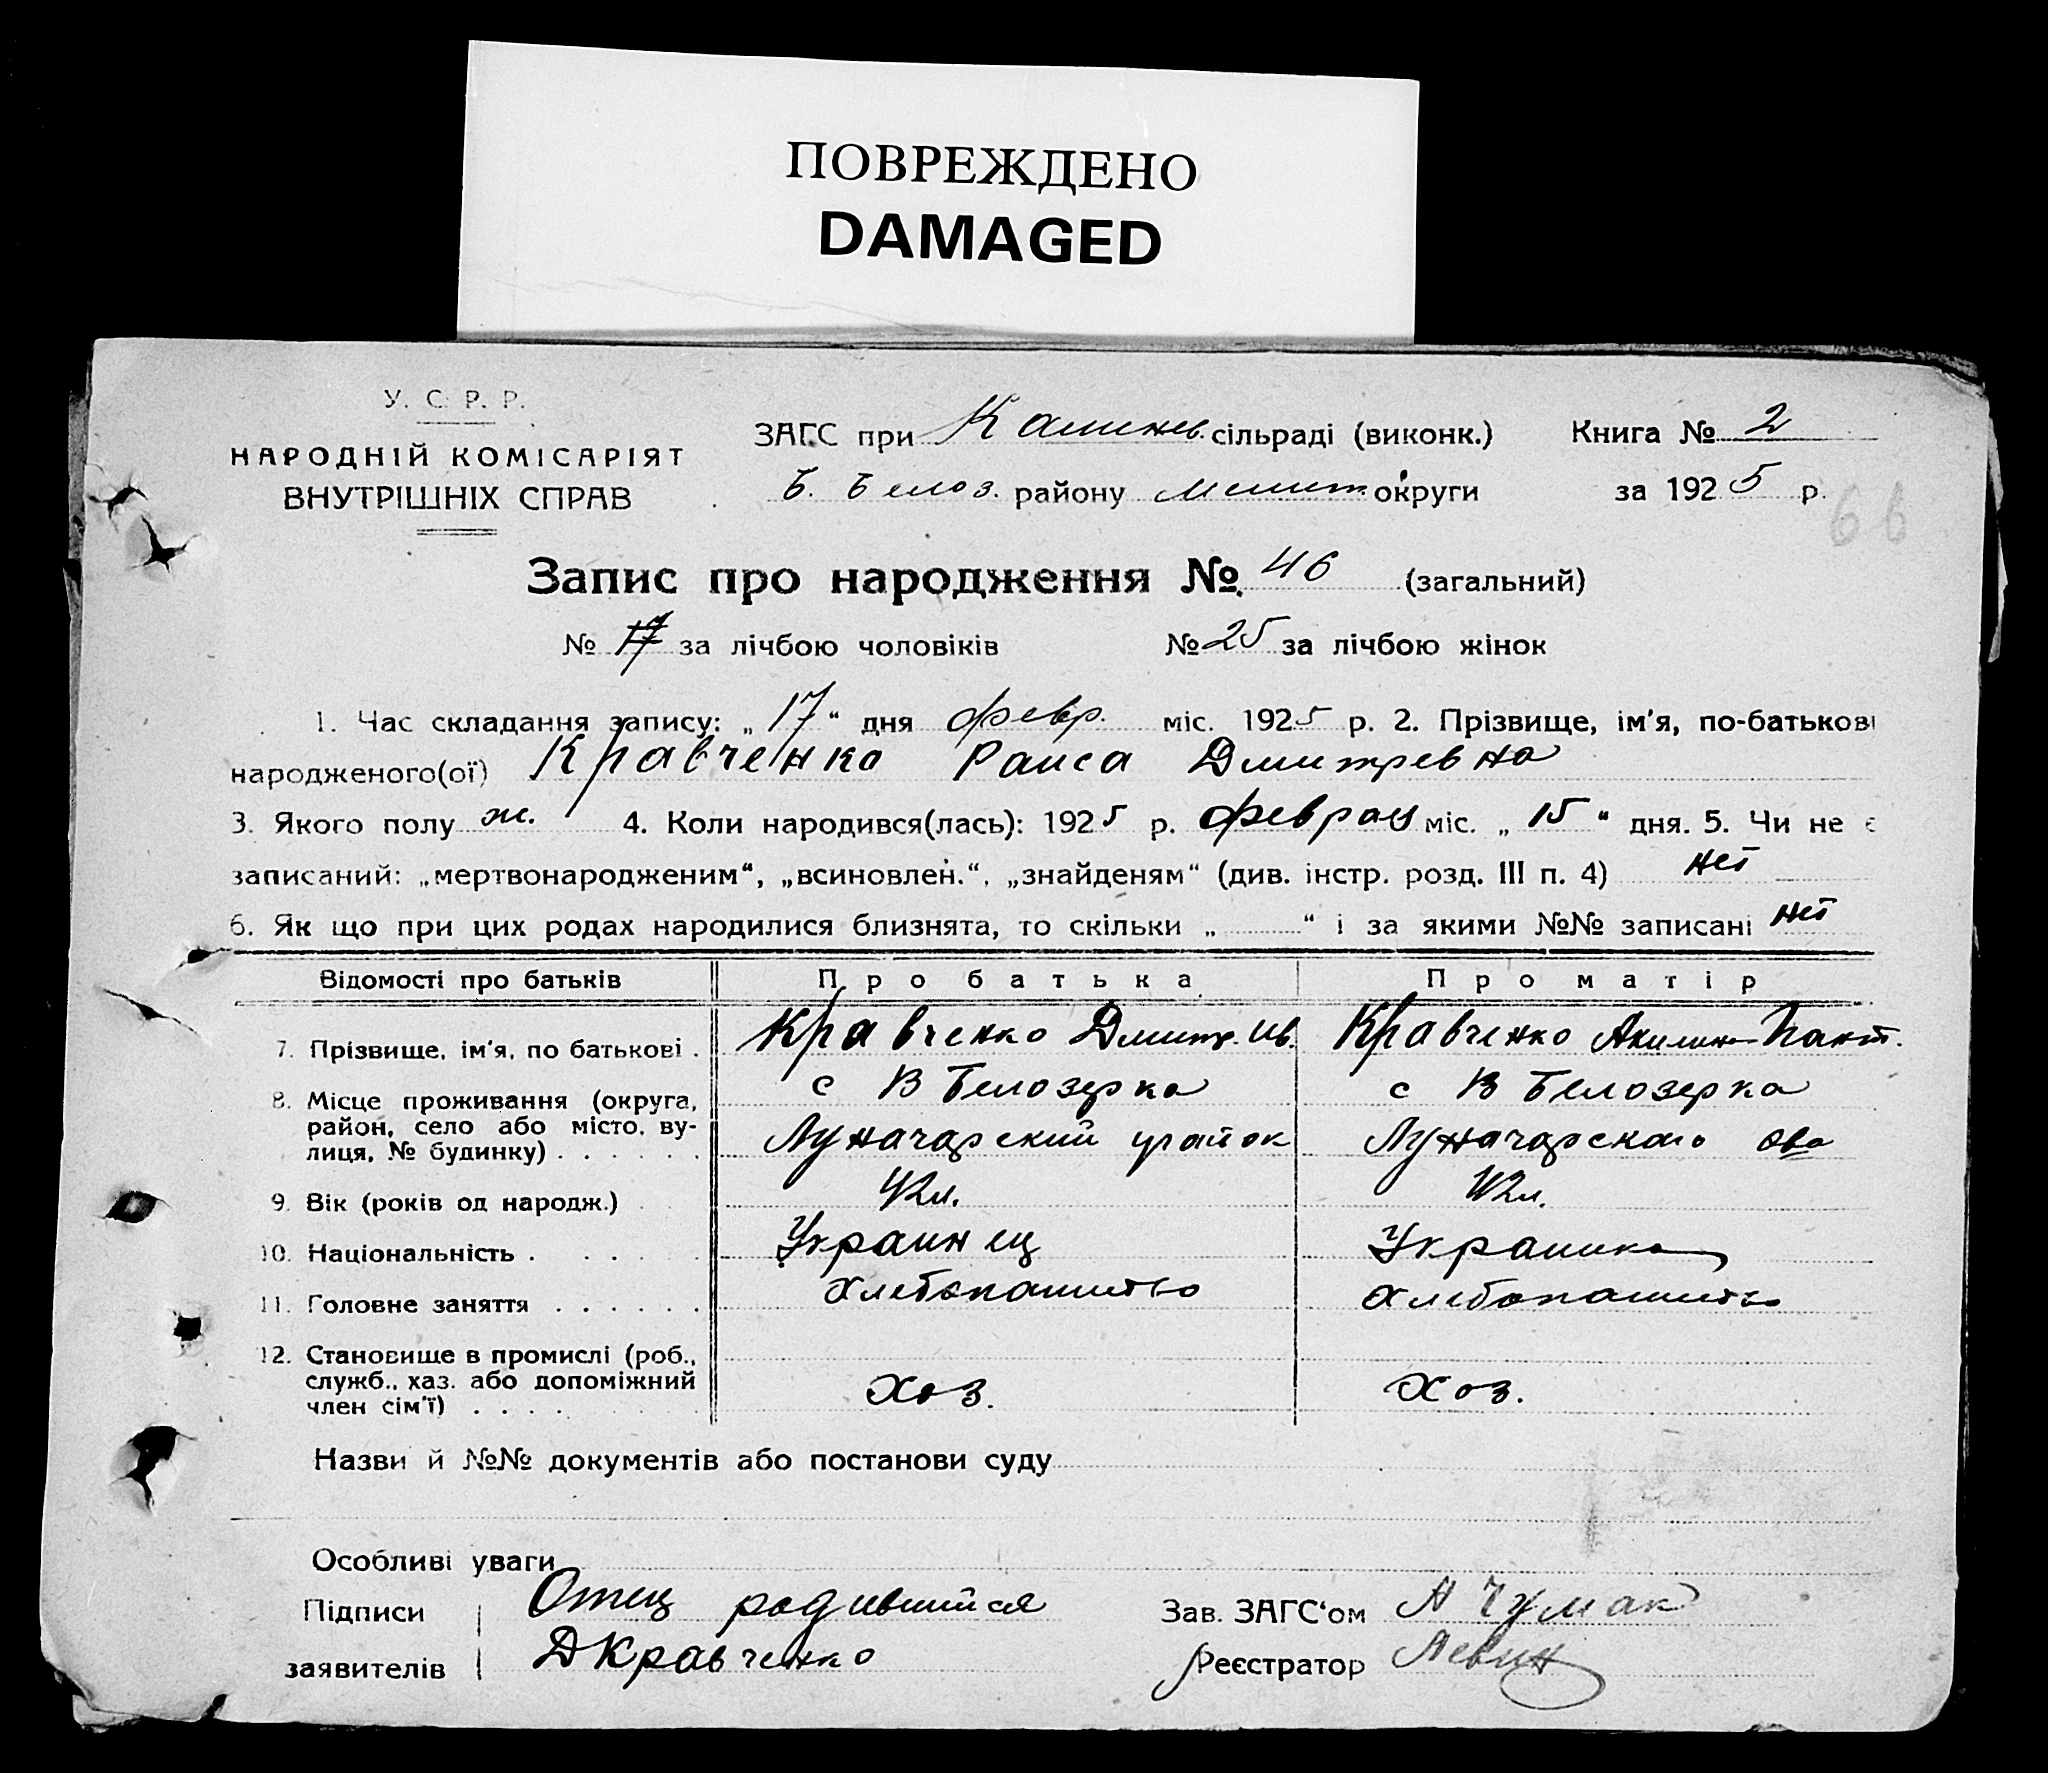 ПОВРЕЖДЕНО
DAMAGED
У. С. Р. Р.
НАРОДНІЙ КОМІСАРІЯТ
ВНУТРІШНІХ СПРАВ
ЗАГС при Каминев. сільраді (виконк.) Книга № 2
Б. Белоз. району Мелит. округи за 1925 р.
66
Запис про народження № 46 (загальний)
№ 17 за лічбою чоловіків № 25 за лічбою жінок
1. Час складання запису: „ 17 “ дня февр. міс. 1925 р. 2. Прізвище, ім'я, по-батькові
народженого(ої) Кравченко Раиса Дмитревна
3. Якого полу ж. 4. Коли народився(лась): 1925 р. феврац міс. „ 15 “ дня. 5. Чи не є
записаний: „мертвонародженим“, „всиновлен.“, „знайденям“ (див. інстр. розд. III п. 4) нет
6. Як що при цих родах народилися близнята, то скільки „ “ і за якими №№ записані нет
Відомості про батьків Про батька Про матір
7. Прізвище, ім'я, по батькові . Кравченко Дмитр. Ив. Кравченко Акилин Пант.
8. Місце проживання (округа, район, село або місто, вулиця, № будинку) . . . . . .
с В Белозерка с В Белозерка
Луначарский Луначарского
9. Вік (років од народж.) 42л. 42л.
10. Національність . . . . . Украинец Украинка
11. Головне заняття . . . . . . Хлебопашество Хлебопашество
12. Становище в промислі (роб., служб., хаз. або допоміжний член сім'ї) . . . .
Хоз. Хоз.
Назви й №№ документів або постанови суду
Особливі уваги
Підписи Отец родившийся Зав. ЗАГС‘ом А Чумак
заявителів ДКравченко Реєстратор Левин